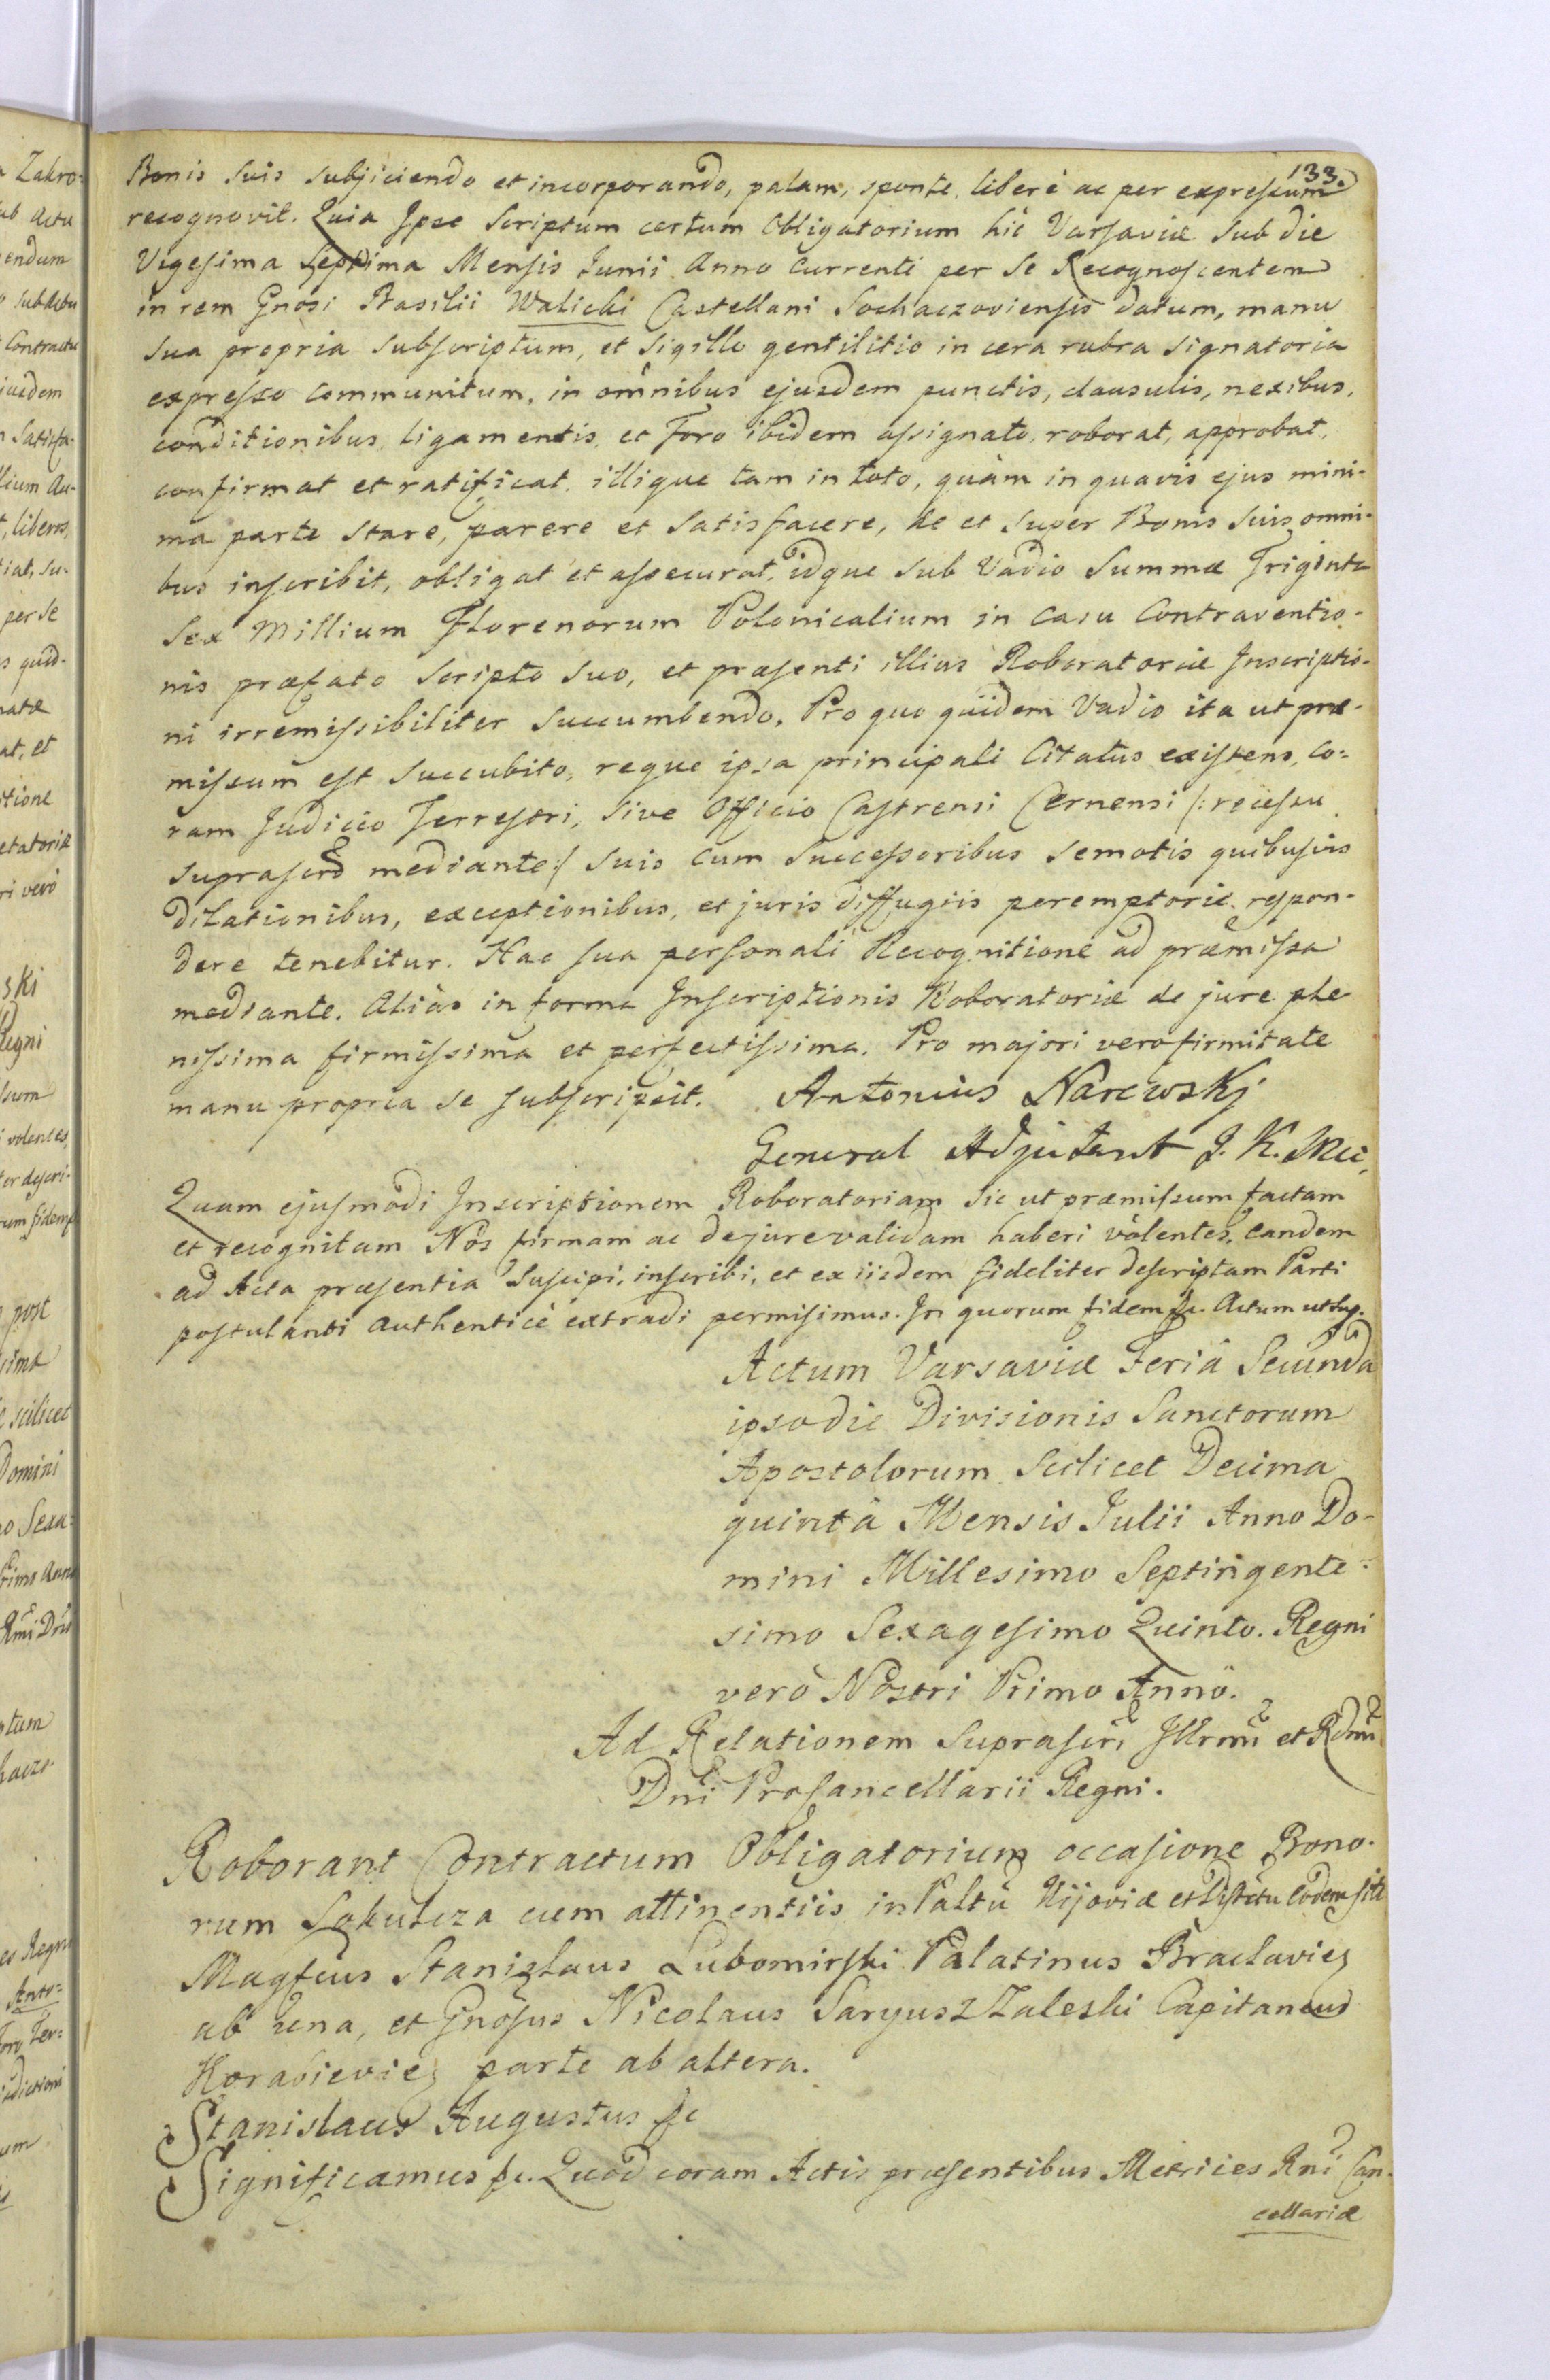 133.
Bonis suis subjiciendo et incorporando, palam, sponte, liberè ac per expressum
recognovit. Quia Ipse Scriptum certum Obligatorium hic Varsaviæ sub die
Vigesima Septima Mensis Junii Anno Currenti per Se Recognoscentem
in rem Gnosi Basilii Walicki Castellani Sochaczoviensis datum, manu
sua propria subscriptum, et sigillo gentilitio in cera rubra signatoria
expresso communitum, in omnibus ejusdem punctis, clausulis, nexibus,
conditionibus, ligamentis, et Foro ibidem assignato, roborat, approbat,
confirmat et ratificat, illique tam in toto, quàm in quavis ejus mini-
ma parte stare, parere et satisfacere, de et super Bonis suis omni-
bus inscribit, obligat et assecurat, idque sub Vadio Summæ Triginta
Sex Millium Florenorum Polonicalium in Casu Contraventio-
nis præfato Scripto suo, et præsenti illius Roboratoriæ Inscriptio-
ni irremissibiliter succumbendo, Pro quo quidem Vadio ita ut præ-
missum est succubito, reque ipsa principali Citatus existens, co-
ram Judicio Terrestri, sive Officio Castrensi Cernensi /: recessu
suprascrō mediante :/ suis cum Successoribus semotis quibusvis
dilationibus, exceptionibus, et juris diffugiis peremptoriè respon-
dere tenebitur. Hac sua personali Recognitione ad præmissa
mediante. Aliàs in forma Inscriptionis Roboratoriæ de jure ple
nissima firmissima et perfectissima. Pro majori vero firmitate
manu propria se subscripsit. Antonius Narewskj
General Adjutant J. K. Mci,
Quam ejusmodi Inscriptionem Roboratoriam sic ut præmissum factam
et recognitam Nos firmam ac de jure validam haberi volentes, eandem
ad Acta præsentia suscipi, inscribi, et ex iisdem fideliter descriptam Parti
postulanti authenticè extradi permisimus. In quorum fidem &c. Actum ut sup.
Actum Varsaviæ Feriâ Secunda
ipso die Divisionis Sanctorum
Apostolorum scilicet Decima
quintâ Mensis Julii Anno Do-
mini Millesimo Septingente-
simo Sexagesimo Quinto. Regni
verò Nostri Primo Anno.
Ad Relationem Suprascri Illrmi et Rdmi
Dni Procancellarii Regni.
Roborant Contractum Obligatorium occasione Bono-
rum Sokulcza cum attinentiis in Palttu Kijoviæ et Distrctu eodem sito
Magfcus Stanislaus Lubomirski Palatinus Braclavien
ab una, et Gnosus Nicolaus Saryusz Zaleski Capitaneus
parte ab altera.
Stanislaus Augustus &c
Significamus &c. Quod coram Actis præsentibus Metrices Rni Can-
cellariæ